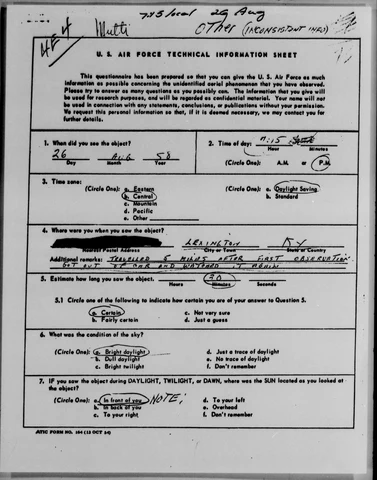 745 local 29 Aug
4E4 Multi Other (INCONSISTENT INFO)
U. S. AIR FORCE TECHNICAL INFORMATION SHEET
This questionnaire has been prepared so that you can give the U. S. Air Force as much
information as possible concerning the unidentified aerial phenomenon that you have observed.
Please try to answer as many questions as you possibly can. The information that you give will
be used for research purposes, and will be regarded as confidential material. Your name will not
be used in connection with any statements, conclusions, or publications without your permission.
We request this personal information so that, if it is deemed necessary, we may contact you for
further details.
1. When did you see the object?
26 Aug 58
Day Month Year
2. Time of day: :15
Hour Minutes
(Circle One): A.M. or P.M.
3. Time zone:
(Circle One): a. Eastern
b. Central
c. Mountain
d. Pacific
e. Other
(Circle One): a. Daylight Saving
b. Standard
4. Where were you when you saw the object?
LEXINGTON KY
Nearest Postal Address City or Town State or Country
Additional remarks: TRAVELLED 6 MILES AFTER FIRST OBSERVATION
GOT OUT OF CAR AND WATCHED IT AGAIN
5. Estimate how long you saw the object. 20
Hours Minutes Seconds
5.1 Circle one of the following to indicate how certain you are of your answer to Question 5.
a. Certain c. Not very sure
b. Fairly certain d. Just a guess
6. What was the condition of the sky?
(Circle One): a. Bright daylight d. Just a trace of daylight
b. Dull daylight e. No trace of daylight
c. Bright twilight f. Don't remember
7. IF you saw the object during DAYLIGHT, TWILIGHT, or DAWN, where was the SUN located as you looked at
the object?
(Circle One): a. In front of you NOTE; d. To your left
b. In back of you e. Overhead
c. To your right f. Don't remember
ATIC FORM NO. 164 (13 OCT 54)